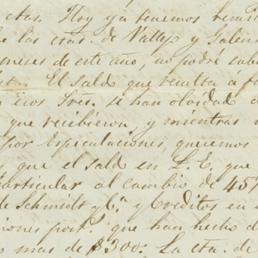 ctas. Hoy ya tenemos
las ctas. de Vallejo y
meses de este año, no podré
El saldo que resulta á
Sres. se han olvidado
que recibieron y mientras
por Especulaciones, queremos
que el saldo en L. E. que
particular al cambio de 45
de Schmidt y Ca. y Creditos en
post. que han hecho d
mas de $300: La cta. de